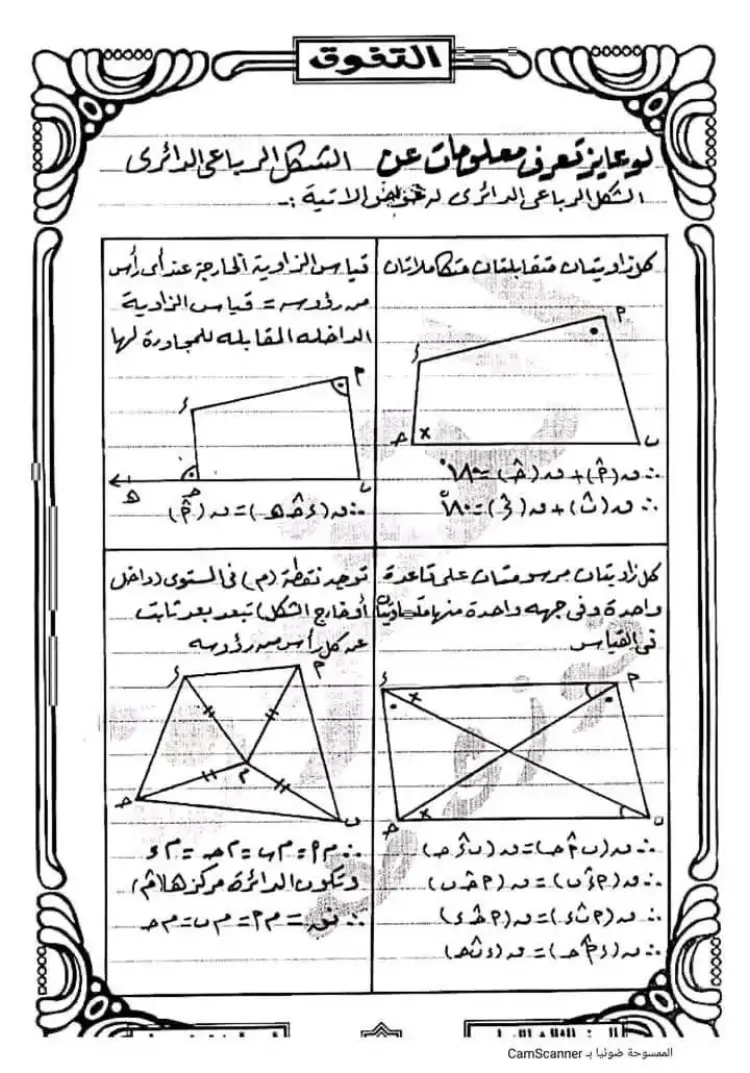 التفوق
لو عايز تعرف معلومات عن الشكل الرباعى الدائرى
الشكل الرباعى الدائرى له الخواص الاتية :ـ
كل زاويتان متقابلتان متكاملاتان
P
ء
ب
ح
x
∴ ق(P̂) + ق(ح̂) = ١٨٠°
∴ ق(ب̂) + ق(ء̂) = ١٨٠°
قياس الزاوية الخارجة عند أى رأس
من رؤوسه = قياس الزاوية
الداخله المقابله للمجاورة لها
P
ء
ب
ح
ه
∴ ق(ء ح̂ ه) = ق(P̂)
كل زاويتان مرسومتان على قاعدة
واحدة وفى جهه واحدة منها متساويتان
فى القياس
P
ء
x
ب
ح
x
∴ ق(ب P̂ ح) = ق(ب ء̂ ح)
∴ ق(P ء̂ ب) = ق(P ح̂ ب)
∴ ق(P ب̂ ء) = ق(P ح̂ ء)
∴ ق(ء P̂ ح) = ق(ء ب̂ ح)
توجد نقطة (م) فى المستوى (داخل
أو خارج الشكل) تبعد بعد ثابت
عن كل رأس من رؤوسه
P
ء
م
ب
ح
∴ م P = م ب = م ح = م ء
وتكون الدائرة مركزها (م)
∴ نق = م P = م ب = م ح
الممسوحة ضوئيا بـ CamScanner